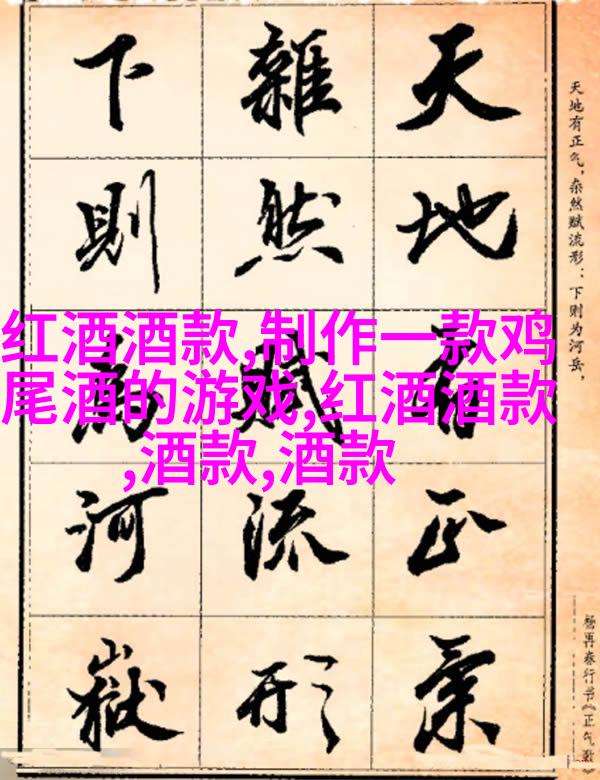 天地有正氣
雜然賦流形
下則為河嶽
天地有正气，杂然赋流形；下则为河岳，
杨再春行书《正气歌》
红酒酒款,制作一款鸡
尾酒的游戏,红酒酒款
,酒款,酒款